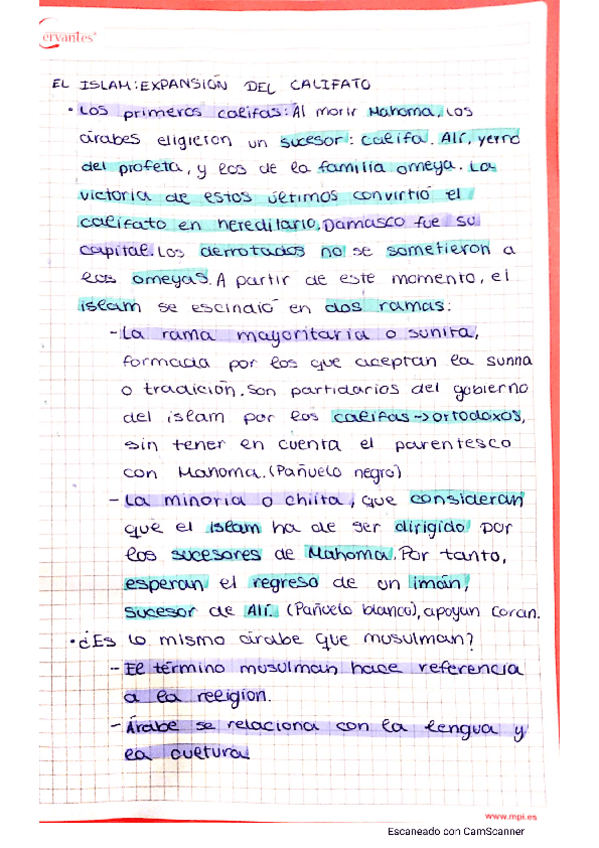 ervantes
EL ISLAM: EXPANSIÓN DEL CALIFATO
• Los primeros califas: Al morir Mahoma, los
árabes eligieron un sucesor: califa. Alí, yerno
del profeta, y los de la familia omeya. La
victoria de estos últimos convirtió el
califato en hereditario. Damasco fue su
capital. Los derrotados no se sometieron a
los omeyas. A partir de este momento, el
islam se escindió en dos ramas:
- La rama mayoritaria o sunita,
formada por los que aceptan la sunna
o tradición. Son partidarios del gobierno
del islam por los califas → ortodoxos,
sin tener en cuenta el parentesco
con Mahoma. (Pañuelo negro)
- La minoría o chiita, que consideran
que el islam ha de ser dirigido por
los sucesores de Mahoma. Por tanto,
esperan el regreso de un imán,
sucesor de Alí. (Pañuelo blanco), apoyan Corán.
• ¿Es lo mismo árabe que musulmán?
- El término musulmán hace referencia
a la religión.
- Árabe se relaciona con la lengua y
la cultura
www.mpi.es
Escaneado con CamScanner